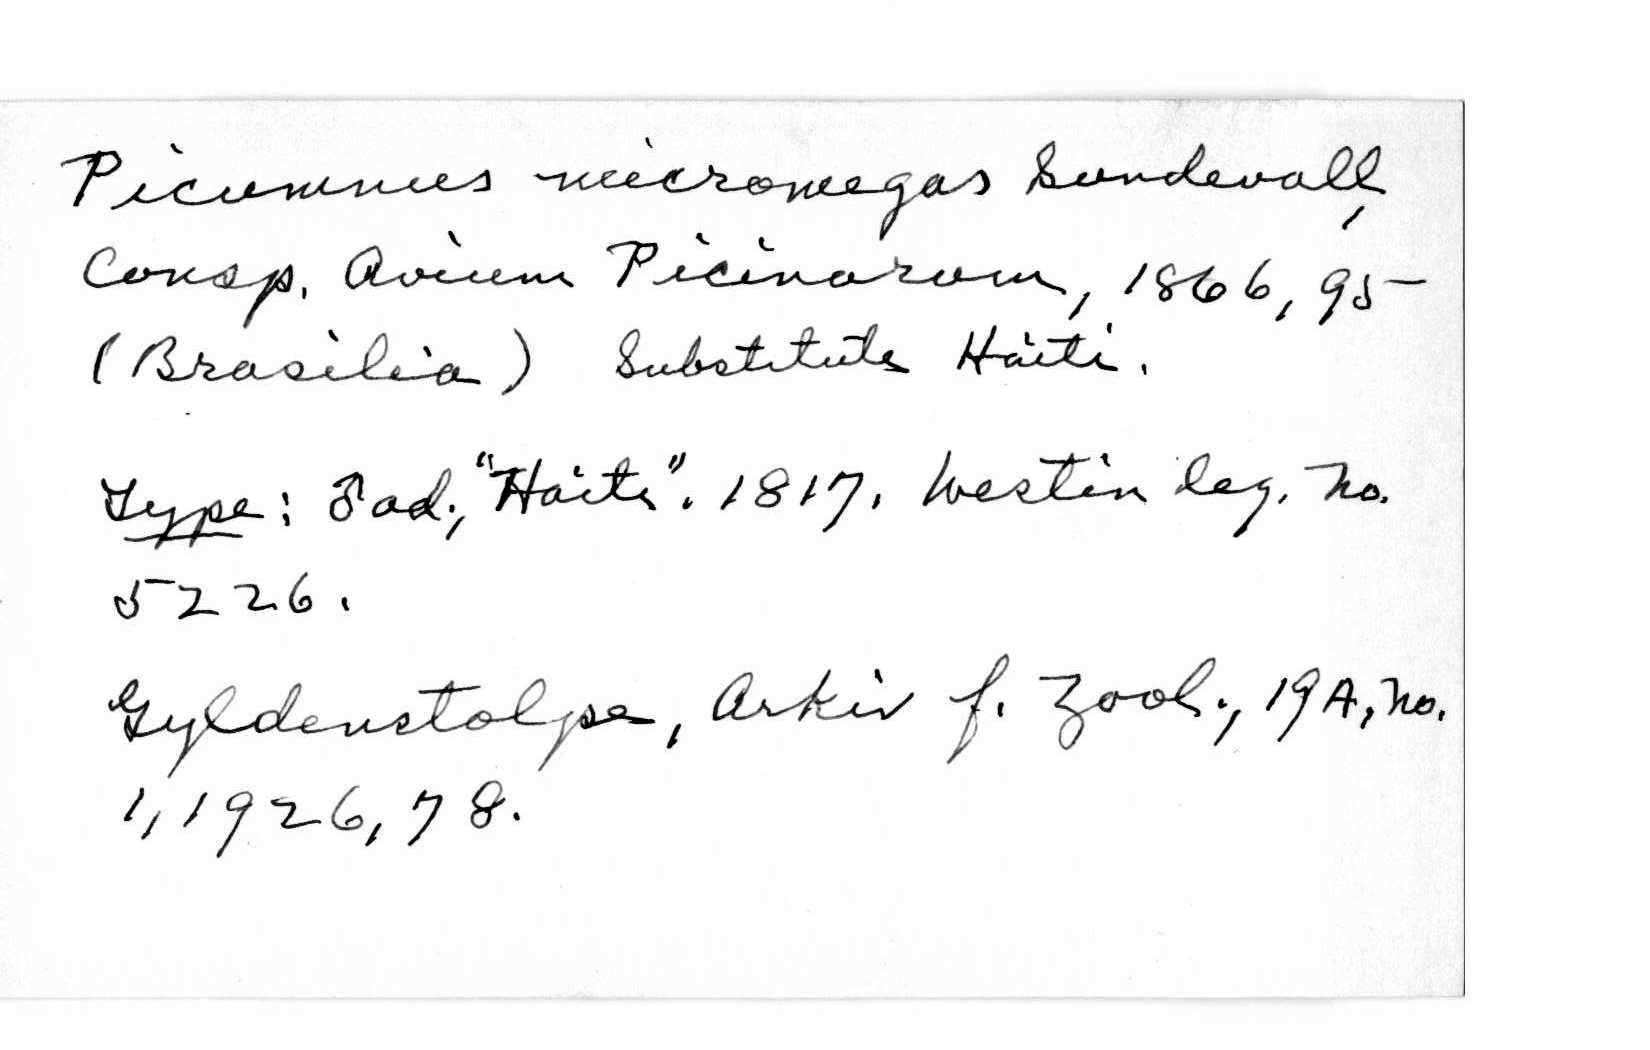 Picumnus micromegas Sundevall,
Consp. Avium Picinarum, 1866, 95
(Brasilia) Substitute Haiti.
Type: ♂ ad., "Haiti". 1817. Westin leg. No.
5226.
Gyldenstolpe, Arkiv f. Zool., 19A, No.
1, 1926, 78.